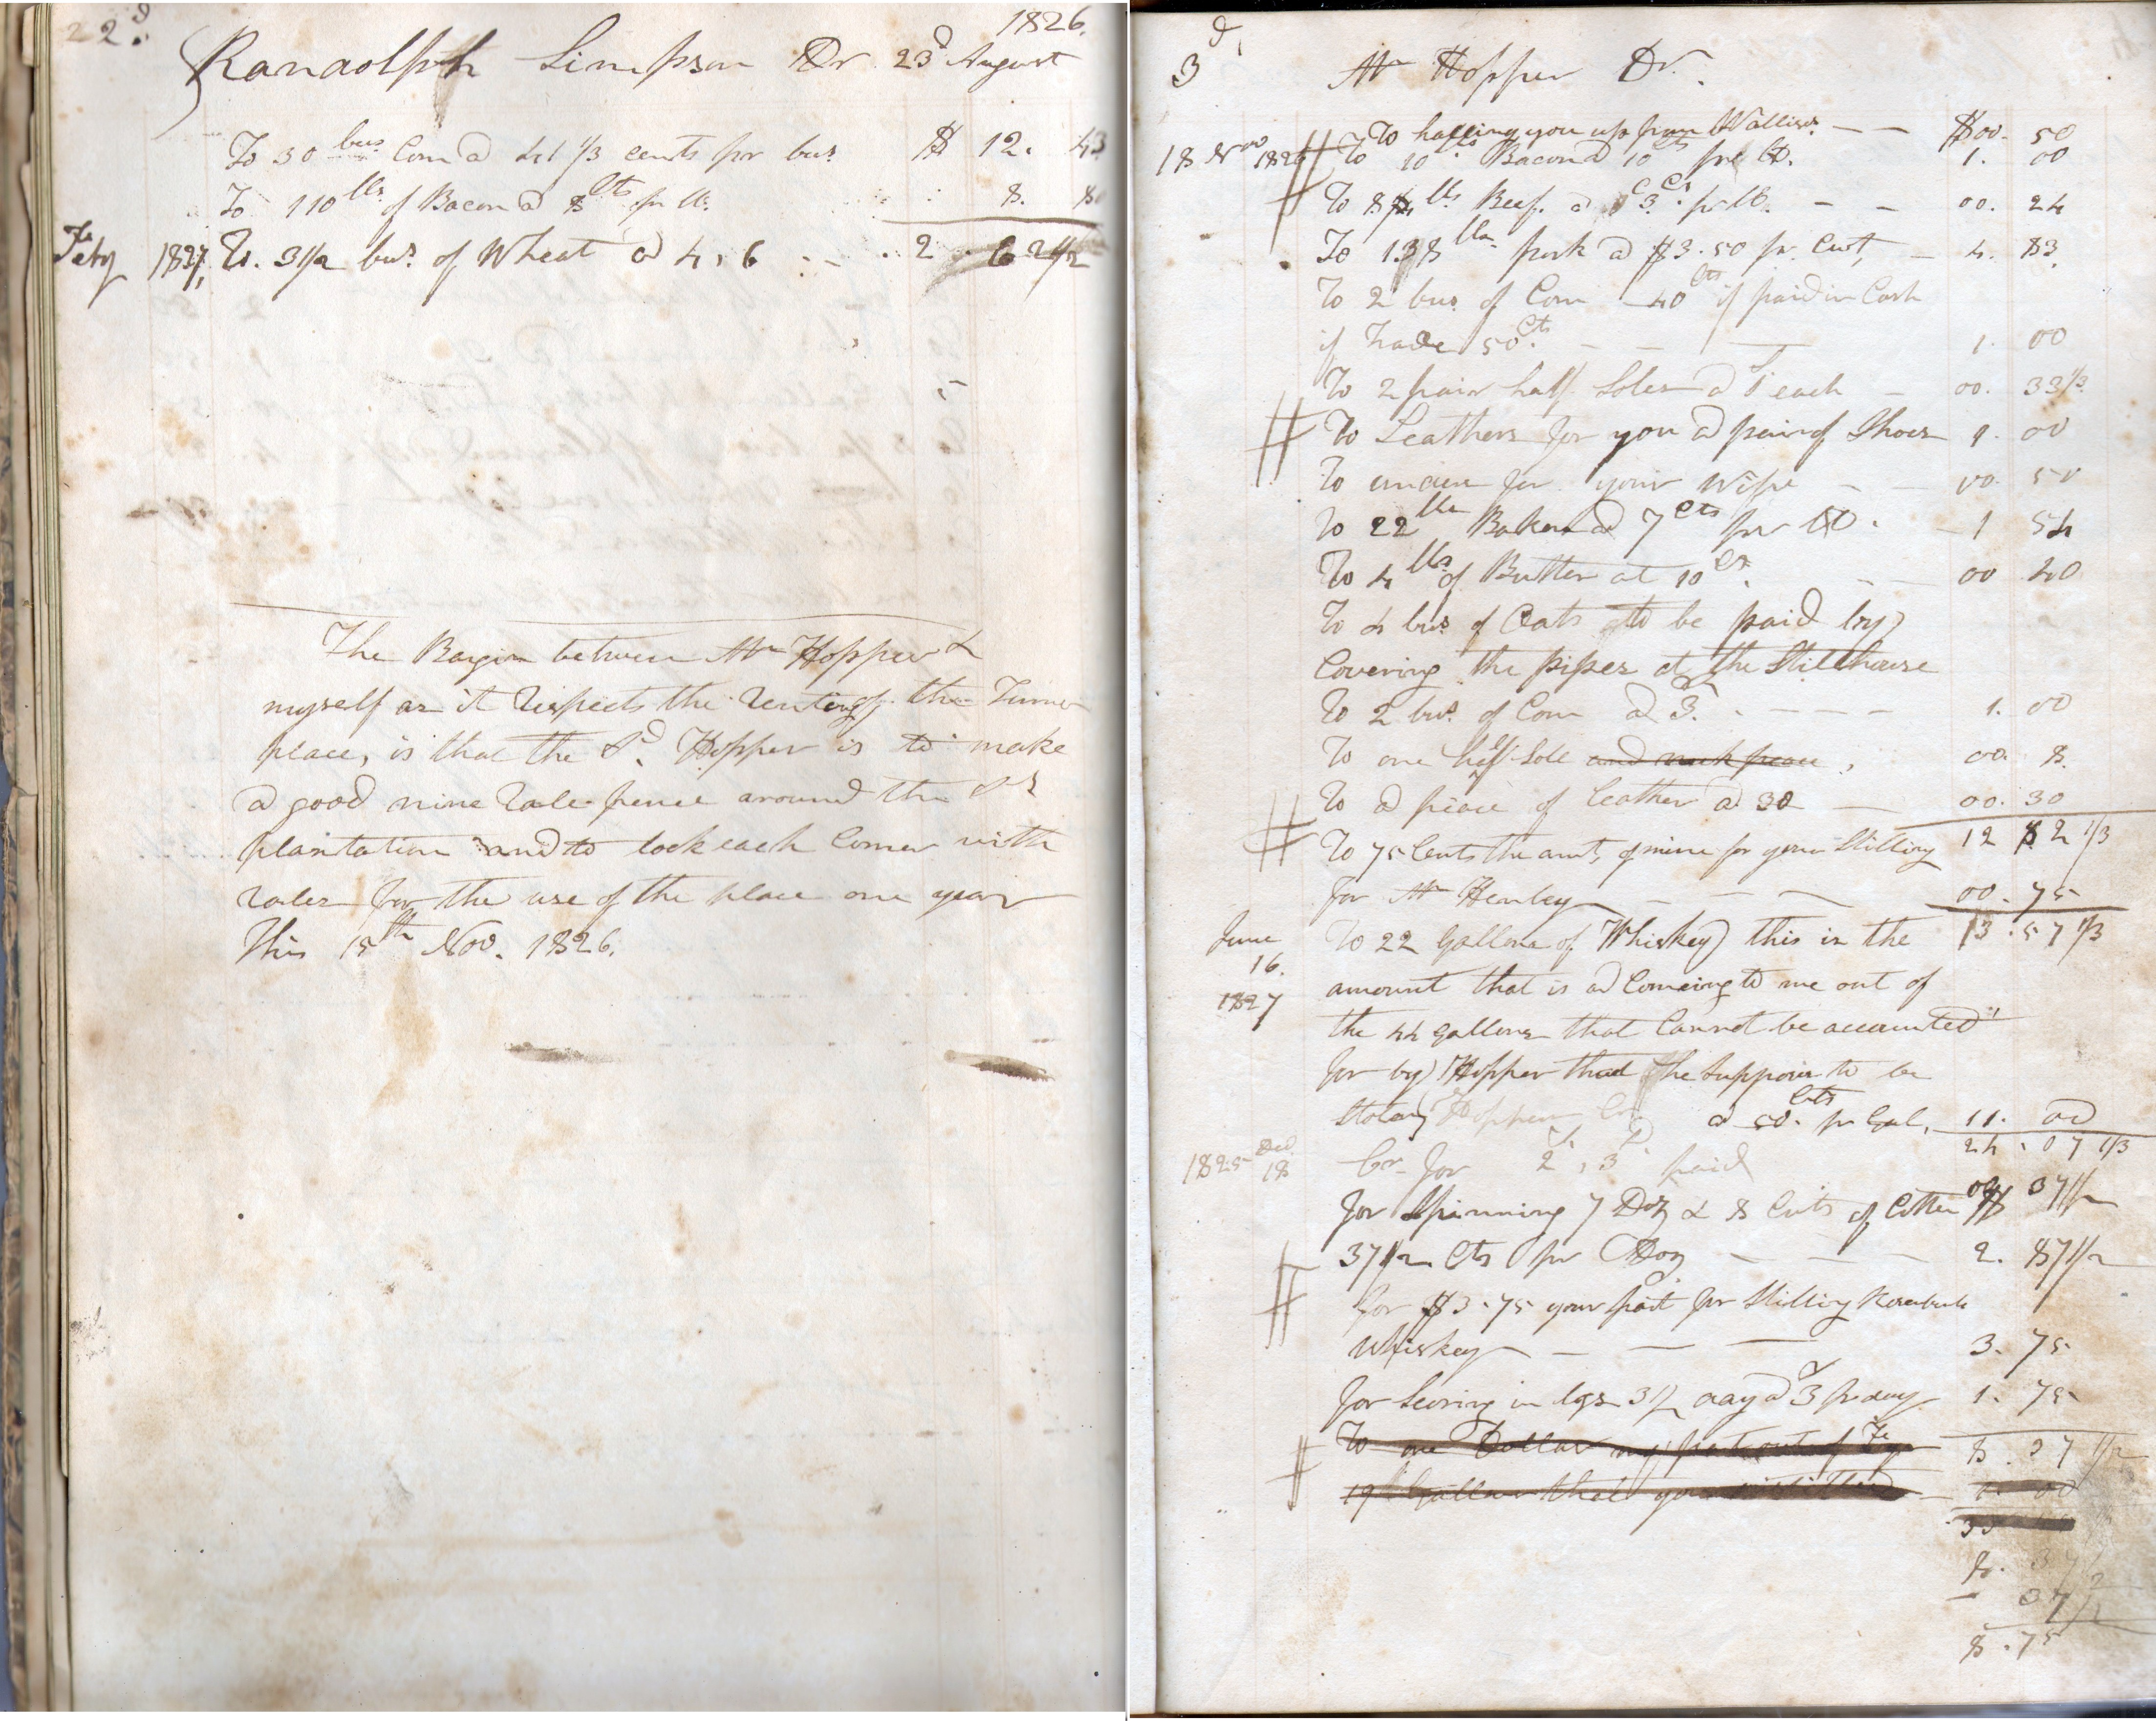 22d.
1826.
Randolph Simpson Dr 23d August
To 30 bus Corn a 41 1/3 cents pr bus $ 12. 43
To 110 lbs of Bacon a 8 Cts pr lb. 8. 80
Feby 1827, To. 3 1/2 bus. of Wheat a 4, 6 2. 62 1/2
The Bargin between Mr Hopper &
myself as it respects the renting of the Turner
place, is that the Sd. Hopper is to make
a good nine rale fence around the Sd
plantation and to lock each Corner with
rales for the use of the place one year
This 15th Nov. 1826.
3d,
Mr Hopper Dr.
To halling you up from Wallis. $00. 50
18 Nov 1826 To 10 lbs. Bacon a 10 cts pre lb. 1. 00
To 8 lbs Beef. a 3 Cs. pr lb. 00. 24
To 138 lbs pork a $3.50 pr. Cwt, 4. 83.
To 2 bus. of Corn 40 Cts if paid in Cash
if trade 50 Cts. 1. 00
To 2 pair half Soles a 1/ each 00. 33 1/3
To Leathers for you a pair of Shoes 1. 00
To for your Wife 00. 50
To 22 lbs Baken a 7 Cts pr lb. 1 54
To 4 lbs of Butter at 10 Cs. 00 40
To 4 bus of Oats to be paid by
Covering the pipes at the Stillhouse
To 2 bus. of Corn a 3/. 1. 00
To one half Sole and 00. 8.
To a piece of leather a 30 00. 30
To 75 Cents the amt, of mine for your Stilling 12 82 1/3
for Mr Henley 00. 75
June 16. 1827 To 22 Gallons of Whiskey this is the 13. 57 1/3
amount that is a Comeing to me out of
the 44 gallons that Cannot be accounted
for by Hopper that he Supposes to be
Stolen Hopper Cr. a 50 Cts. pr Gal, 11. 00
24. 07 1/3
1825 Dec. 18 Cr. for 2/, 3d paid
for Spinning 7 Doz & 8 Cuts of Cotten 37 1/2
37 1/2 Cts pr Doz 2. 87 1/2
for $3.75 your part for Stilling
Whiskey 3. 75
for Scoring in logs 3 1/2 day a 3/ pr day 1. 75
To one Dollar my part out of 8. 37 1/2
19 Gallons that you
8. 37 1/2
37 1/2
8. 75